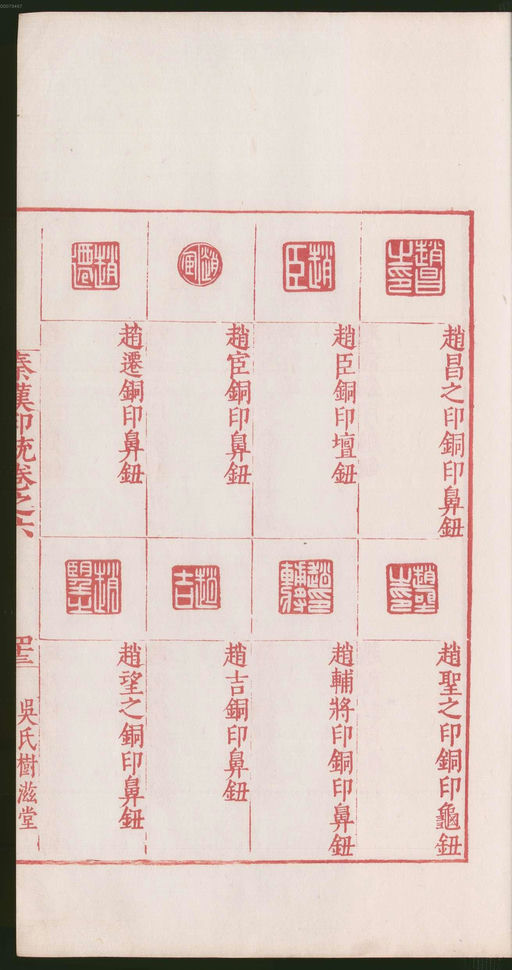 趙昌之印銅印鼻鈕
趙臣銅印壇鈕
趙宦銅印鼻鈕
趙遷銅印鼻鈕
趙聖之印銅印龜鈕
趙輔將印銅印鼻鈕
趙吉銅印鼻鈕
趙望之銅印鼻鈕
秦漢印統卷之六
吳氏樹滋堂
00073467